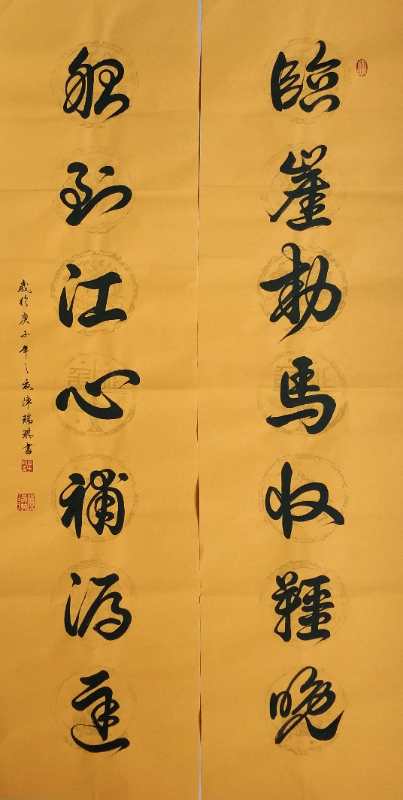 臨崖勒馬收韁晚
船到江心補漏遲
歲於庚子年之秋瑞書